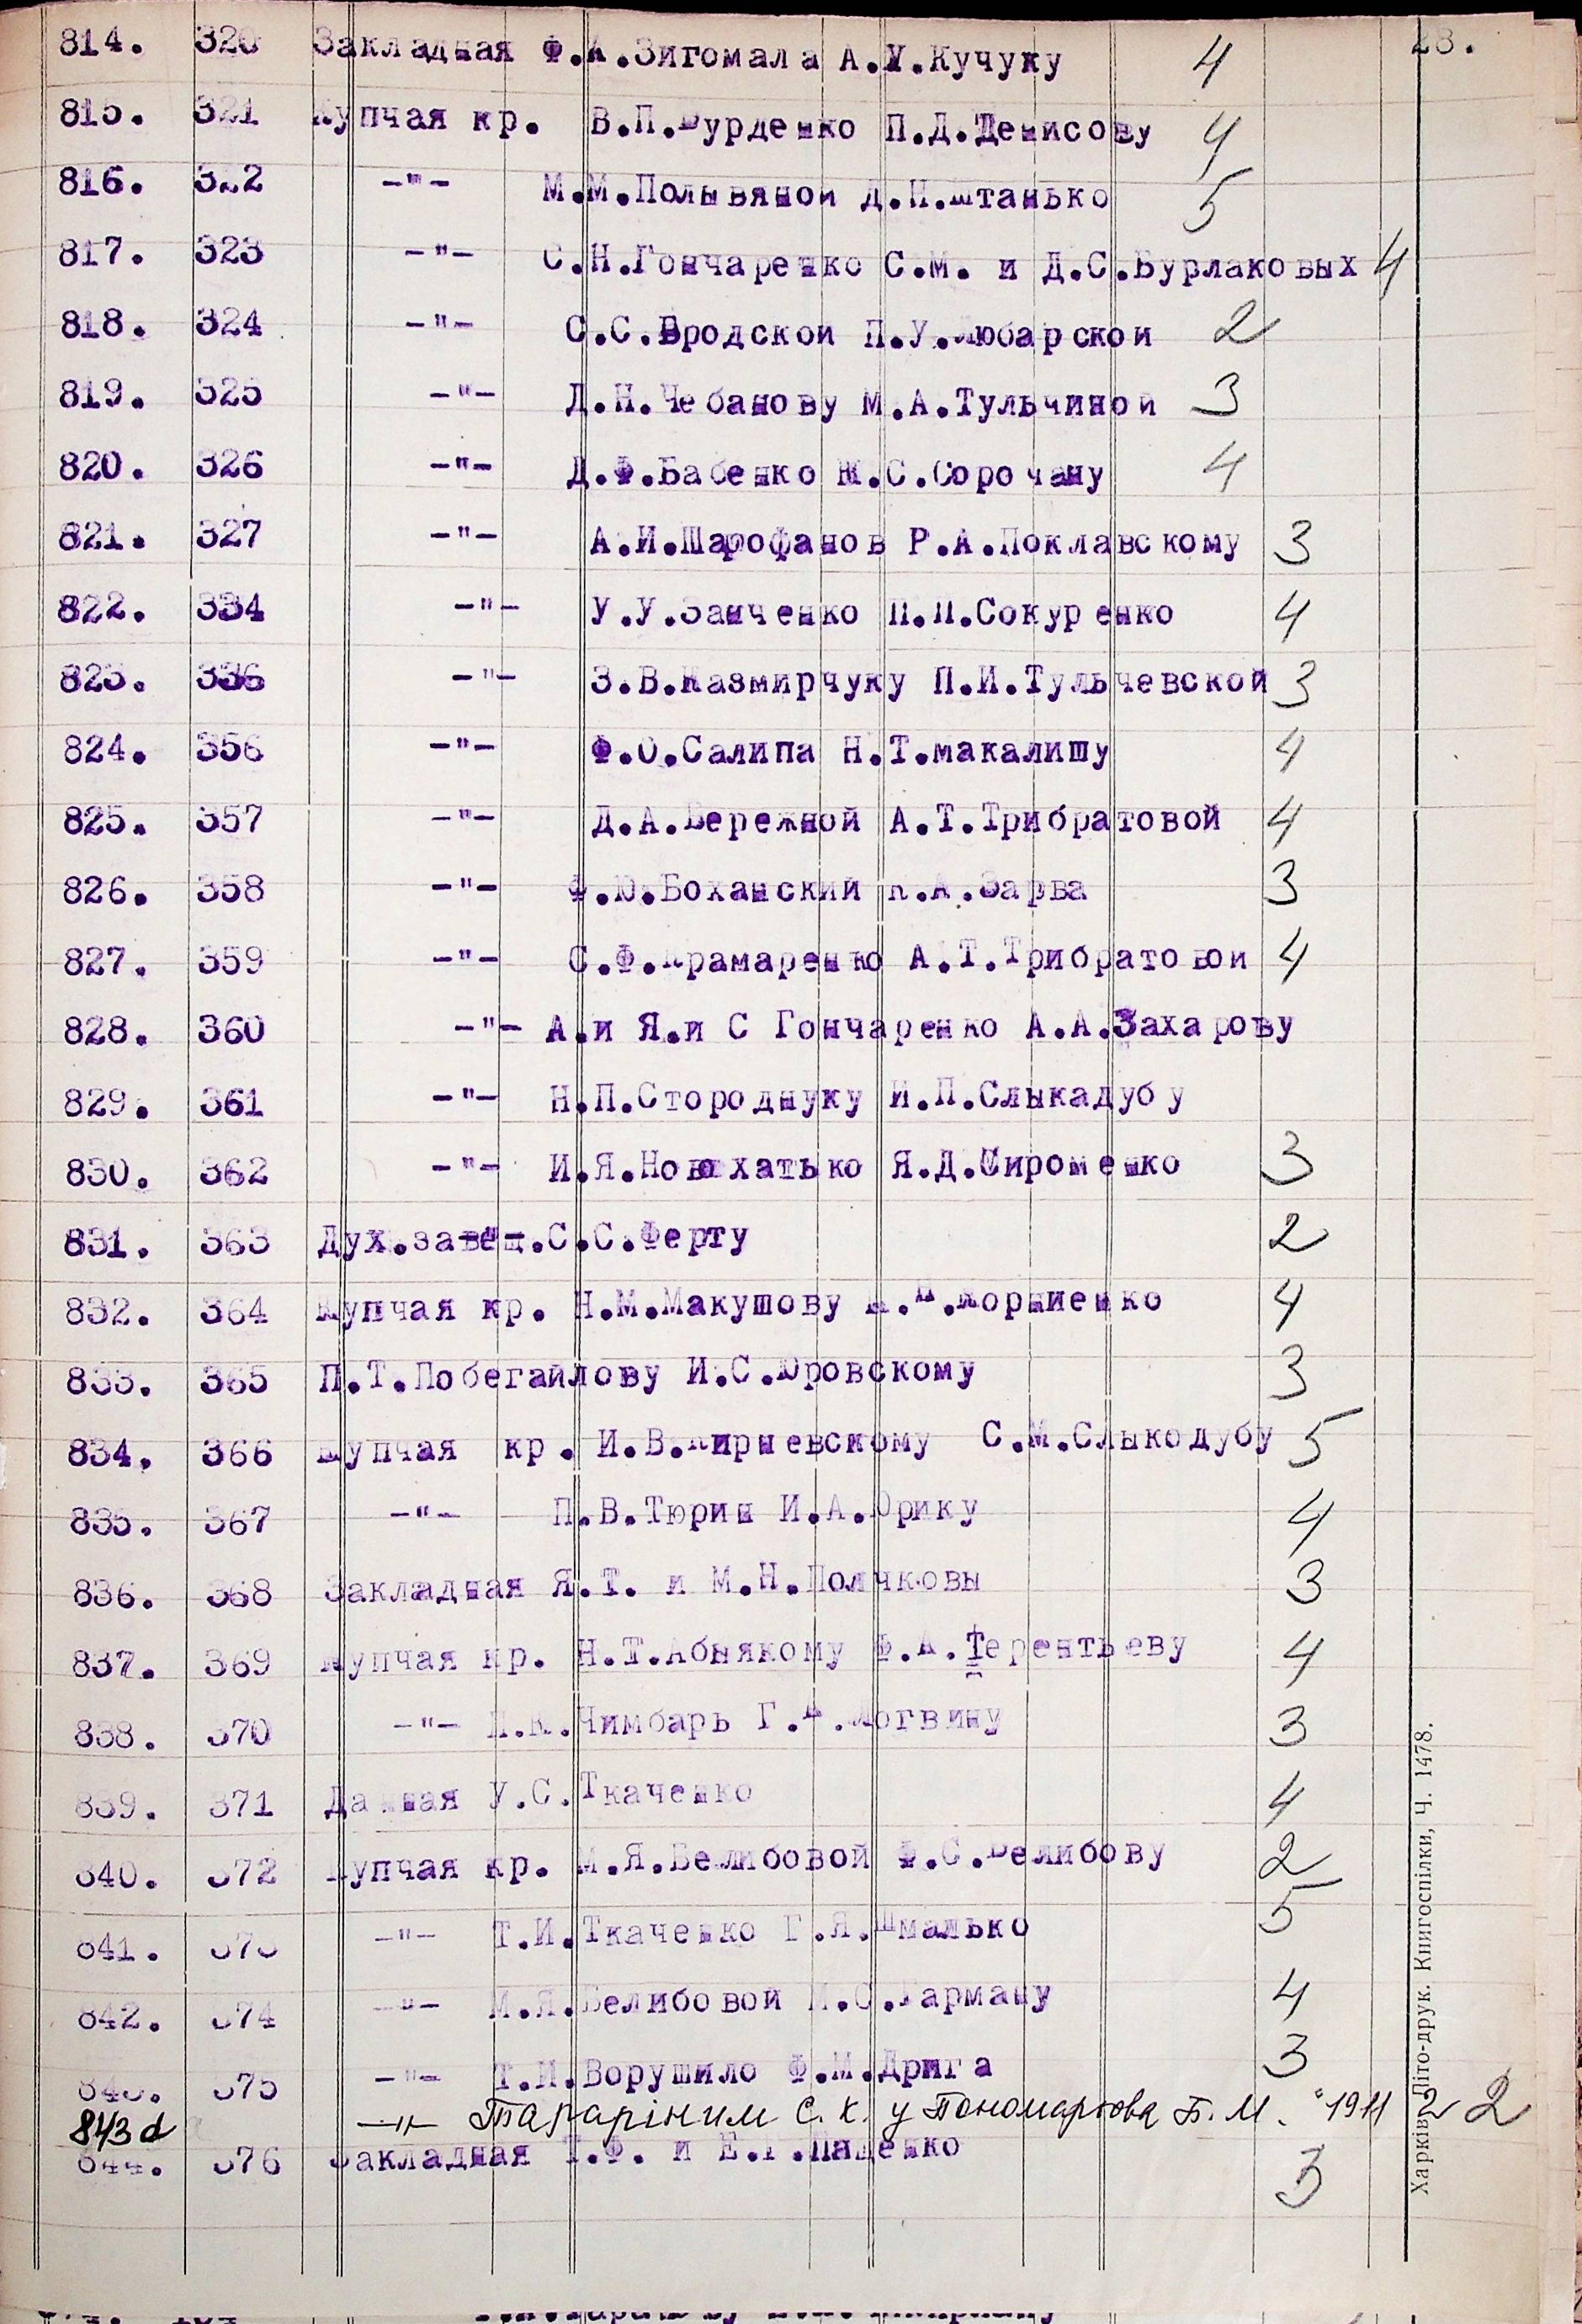 28.
814. 320 Закладная Ф.А.Зигомала А.У.Кучуку 4
815. 321 Купчая кр. В.П.Бурденко П.Д.Денисову 4
816. 322 -"- М.М.Полывяной Д.Н.Штанько 5
817. 323 -"- С.Н.Гончаренко С.М. и Д.С.Бурлаковых 4
818. 324 -"- С.С.Бродской П.У.Любарской 2
819. 325 -"- Д.Н.Чебанову М.А.Тульчиной 3
820. 326 -"- Д.Ф.Бабенко Ж.С.Сорочану 4
821. 327 -"- А.И.Шарофанов Р.А.Поклавскому 3
822. 334 -"- У.У.Занченко П.П.Сокуренко 4
823. 336 -"- З.В.Казмирчуку П.И.Тульчевской 3
824. 356 -"- Ф.О.Салипа Н.Т.макалишу 4
825. 357 -"- Д.А.Бережной А.Т.Трибратовой 4
826. 358 -"- Ф.Ю.Боханский К.А.Зарва 3
827. 359 -"- С.Ф.Крамаренко А.Т.Трибратовой 4
828. 360 -"- А.и Я.и С Гончаренко А.А.Захарову
829. 361 -"- Н.П.Стороднуку И.П.Слыкадубу
830. 362 -"- И.Я.Новохатько Я.Д.Мироненко 3
831. 363 Дух.завещ.С.С.Ферту 2
832. 364 Купчая кр. Н.М.Макушову Корниенко 4
833. 365 П.Т.Побегайлову И.С.Юровскому 3
834. 366 Купчая кр. И.В.Кирневскому С.М.Слыкодубу 5
835. 367 -"- П.В.Тюрин И.А.Юрику 4
836. 368 Закладная Я.Т. и М.Н.Полчковы 3
837. 369 Купчая кр. Н.Т.Абнякому Ф.А.Терентьеву 4
838. 370 -"- Чимбарь Логвину 3
839. 371 Данная У.С.Ткаченко 4
840. 372 Купчая кр. М.Я.Велибовой Ф.С.Велибову 2
841. 373 -"- Т.И.Ткаченко Г.Я.Шмалько 5
842. 374 -"- М.Я.Велибовой Гарману 4
843. 375 -"- Т.И.Ворушило Ф.М.Дрига 3
843д -"- Тараріним С. К. у Пономарьова Б. М. "1911 2 2
844. 376 Закладная Т.Ф. и Е.Г.Паценко 3
Харків, Літо-друк. Книгоспілки, Ч. 1478.